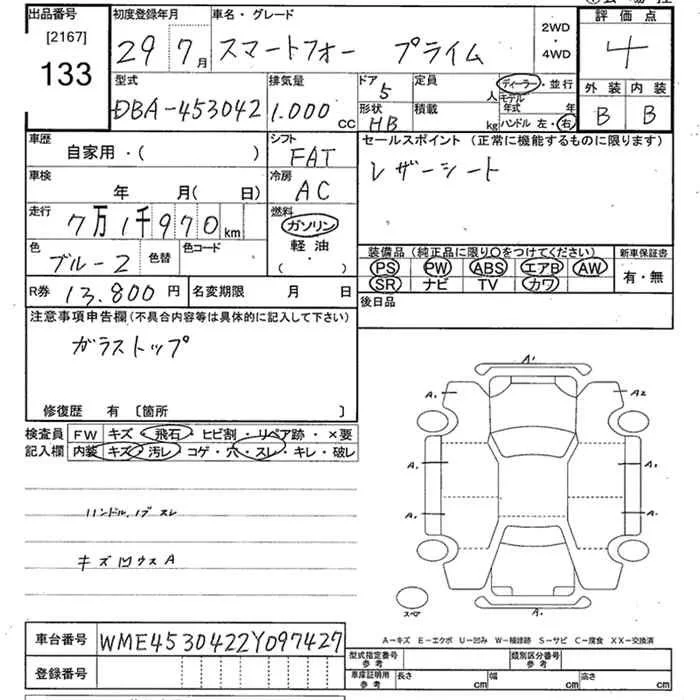 出品番号
[2167]
133
初度登録年月
29 7月
車名・グレード
スマートフォー プライム
2WD
・
4WD
評価点
4
外装 内装
B B
型式
DBA-453042
排気量
1.000 cc
ドア
5
形状
HB
定員
人
積載
kg
ディーラー・並行
モデル
年式 年
ハンドル 左・右
車歴
自家用・( )
シフト
FAT
セールスポイント (正常に機能するものに限ります)
レザーシート
車検
年 月( 日)
冷房
AC
走行
7万1千970km
燃料
ガソリン
軽油
・
( )
色
ブルー2
色替
色コード
装備品 (純正品に限り〇をつけてください)
PS PW ABS エアB AW
SR ナビ TV カワ
新車保証書
有・無
R券 13.800円
名変期限 月 日
後日品
注意事項申告欄(不具合内容等は具体的に記入して下さい)
ガラストップ
修復歴 有 〔箇所 〕
検査員
記入欄
FW キズ・飛石・ヒビ割・リペア跡・×要
内装 キズ・汚レ・コゲ・穴・スレ・キレ・破レ
ハンドル,ノブ スレ
キズ凹ウスA
A'
A. A2
A. A.
A. A.
スペア
A.
A-キズ E-エクボ U-凹み W-補修跡 S-サビ C-腐食 XX-交換済
車台番号 WME4530422Y097427
登録番号
型式指定番号
参考
類別区分番号
参考
車庫証明用
参考
長さ cm
幅 cm
高さ cm